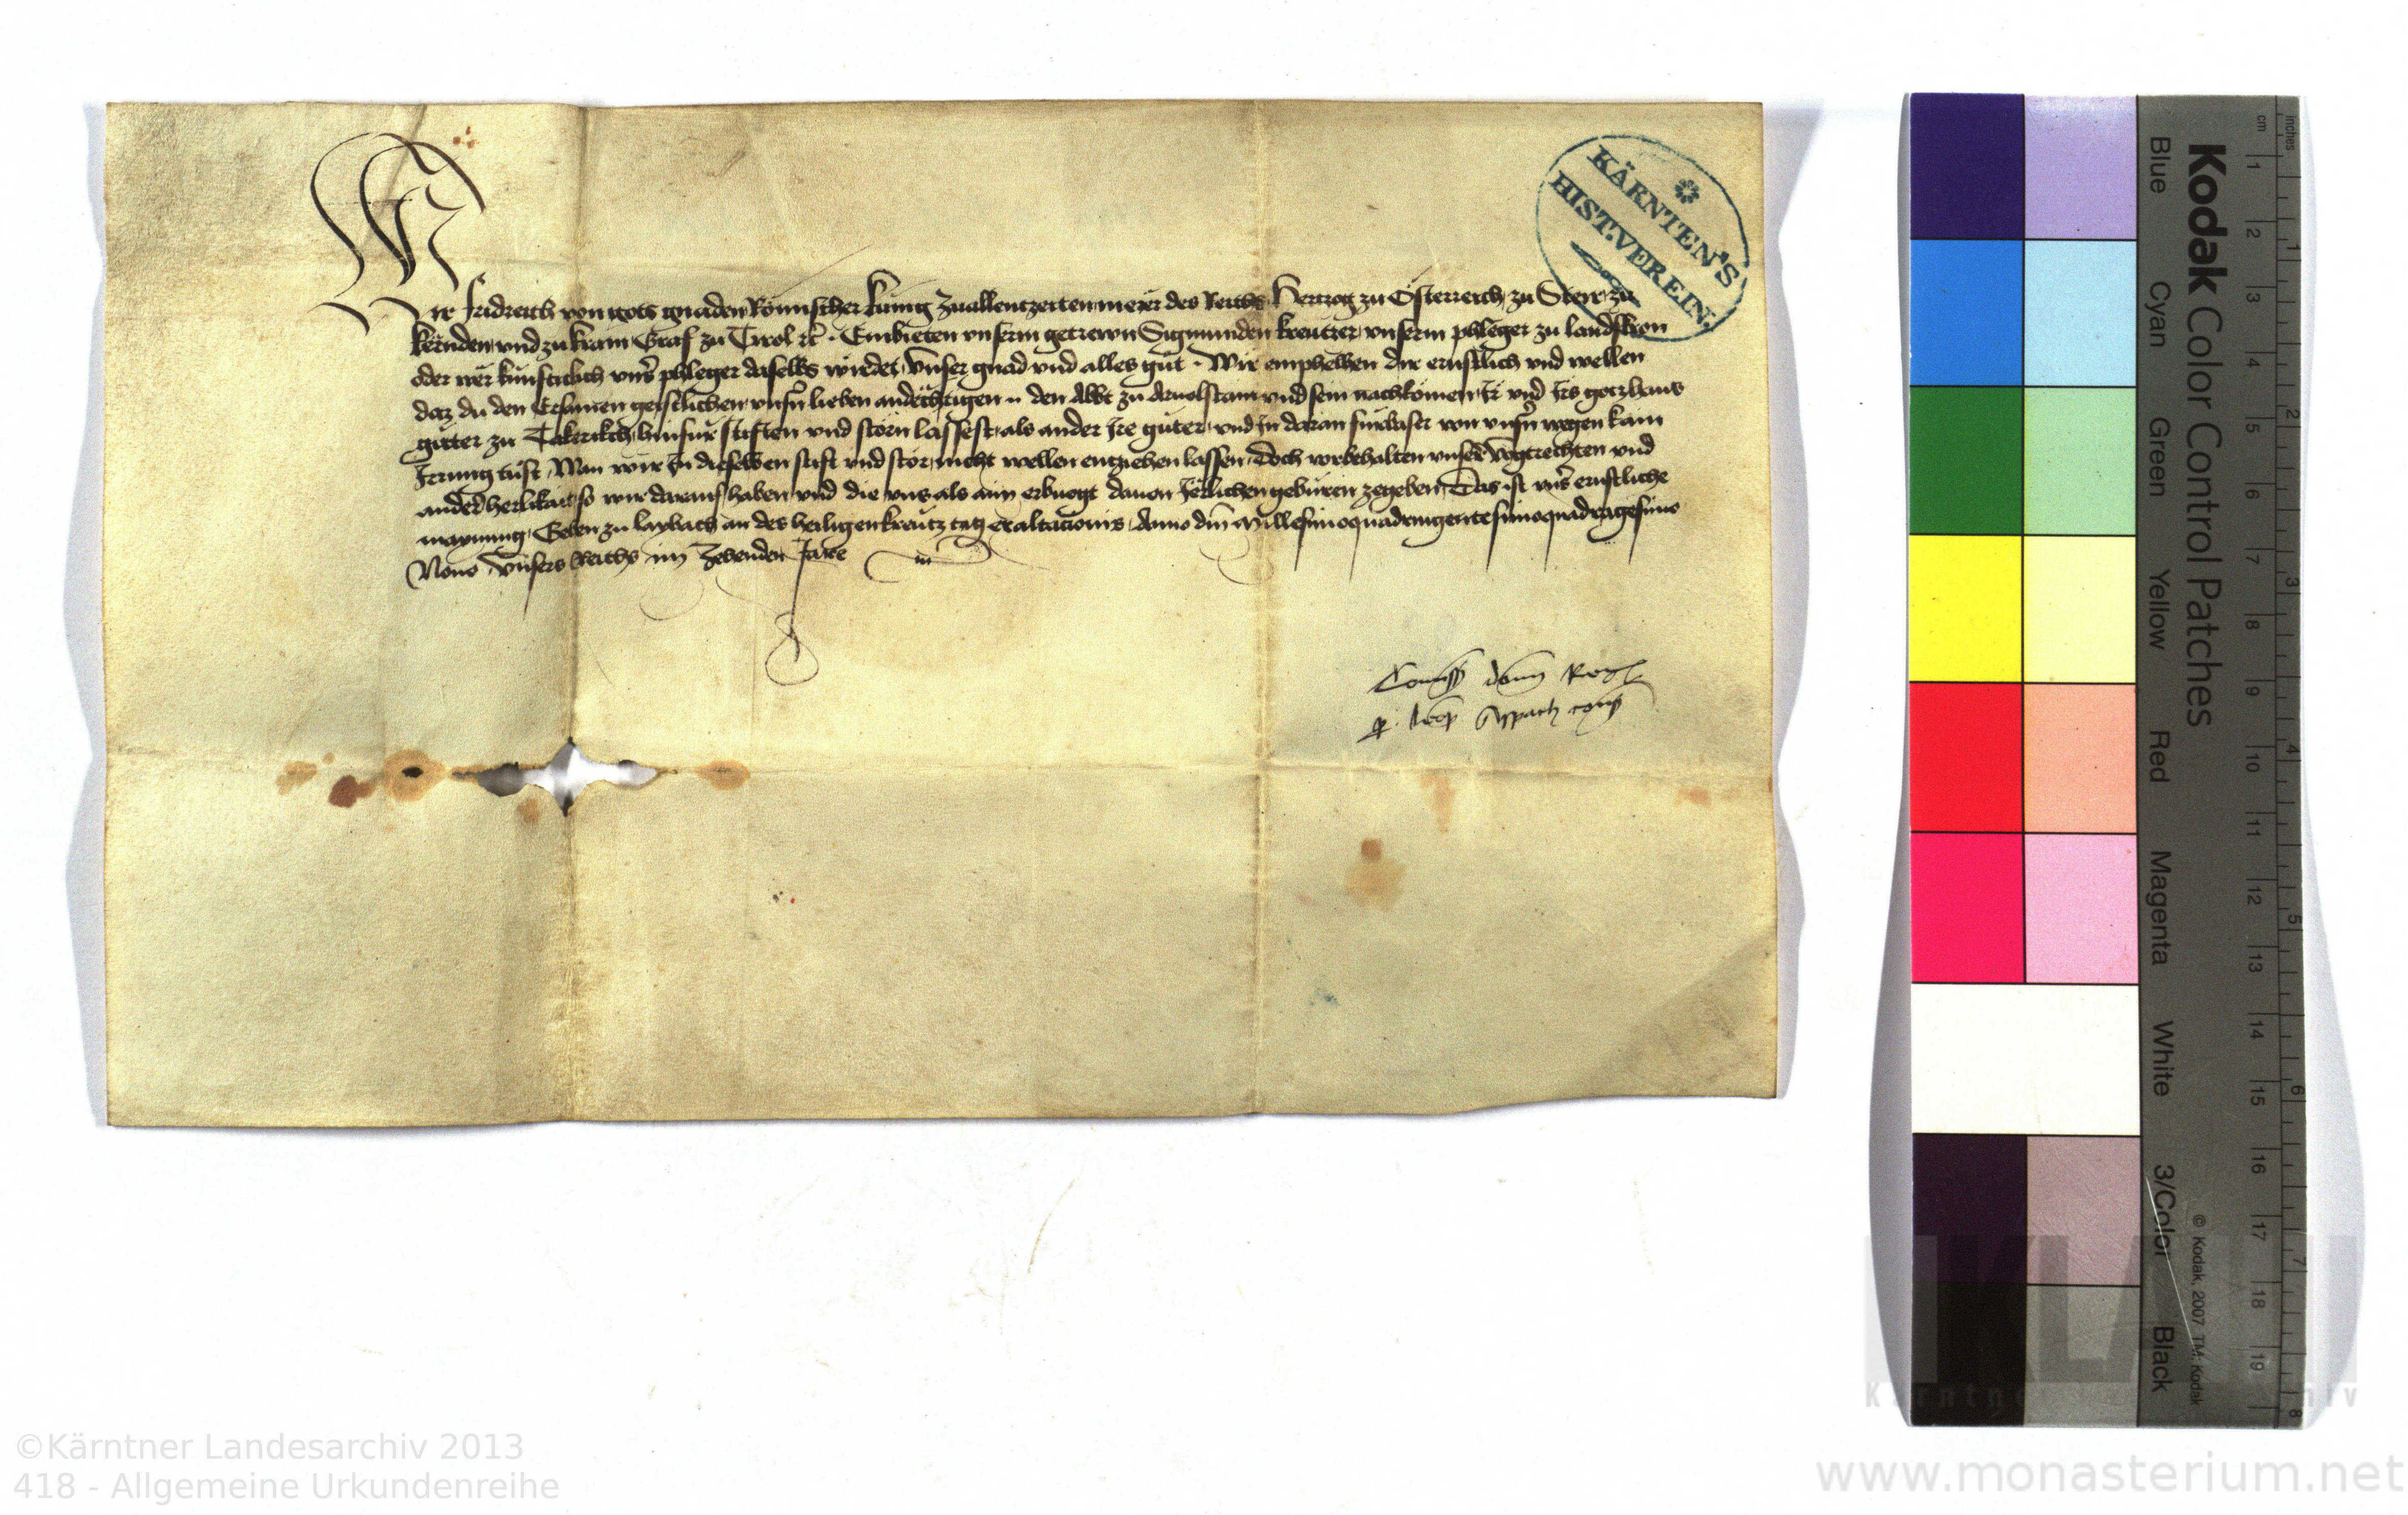 Wir Fridreich von gots gnaden Römischer kunig Zuallentzeiten merer des Reichs Hertzog zu Österreich zu Steir zu
kernden vnd zu krain Graf zu Tirol etc. Embieten vnserm getrewn Sigmunden kreutzer vnserm phleger zu landskron
oder wer kunfticlich vnser phleger daselbs wirdet, Vnser gnad vnd alles gut. Wir emphelhen dir ernstlich vnd wellen
daz du den Ersamen geistlichen vnsern lieben andechtigen .. den Abbt zu Arnolstain vnd sein nachkomen, Ir vnd Irs gotzhaus
guter zu hinfur stiften vnd storn lassest, als ander Ire guter, vnd In daran furbaser von vnsern wegen kain
Irrung tust, Wan wir In dieselben stift vnd stör, nicht wellen entziehen lassen, Doch vorbehalten vnser Vogtrechten vnd
ander herlikait, so wir darauf haben, vnd die vns als aim erbuogt dauon Jerlichen geburen zegeben, Das ist vnser ernstliche
maynung, Geben zu laybach an des heiligen kreutz tag exaltacionis, Anno dni Millesimoquadringentesimoquadragesimo
Nono, Vnsers Reichs im Zehenden Jare
Comiss domi Regis
p. leop Aspach
KÄRNTEN'S
HIST. VEREIN.
Kodak Color Control Patches
Blue Cyan Green Yellow Red Magenta White 3/Color Black
© Kodak, 2007 TM: Kodak
cm 1 2 3 4 5 6 7 8 9 10 11 12 13 14 15 16 17 18 19
inches 1 2 3 4 5 6 7 8
©Kärntner Landesarchiv 2013
418 - Allgemeine Urkundenreihe
www.monasterium.net